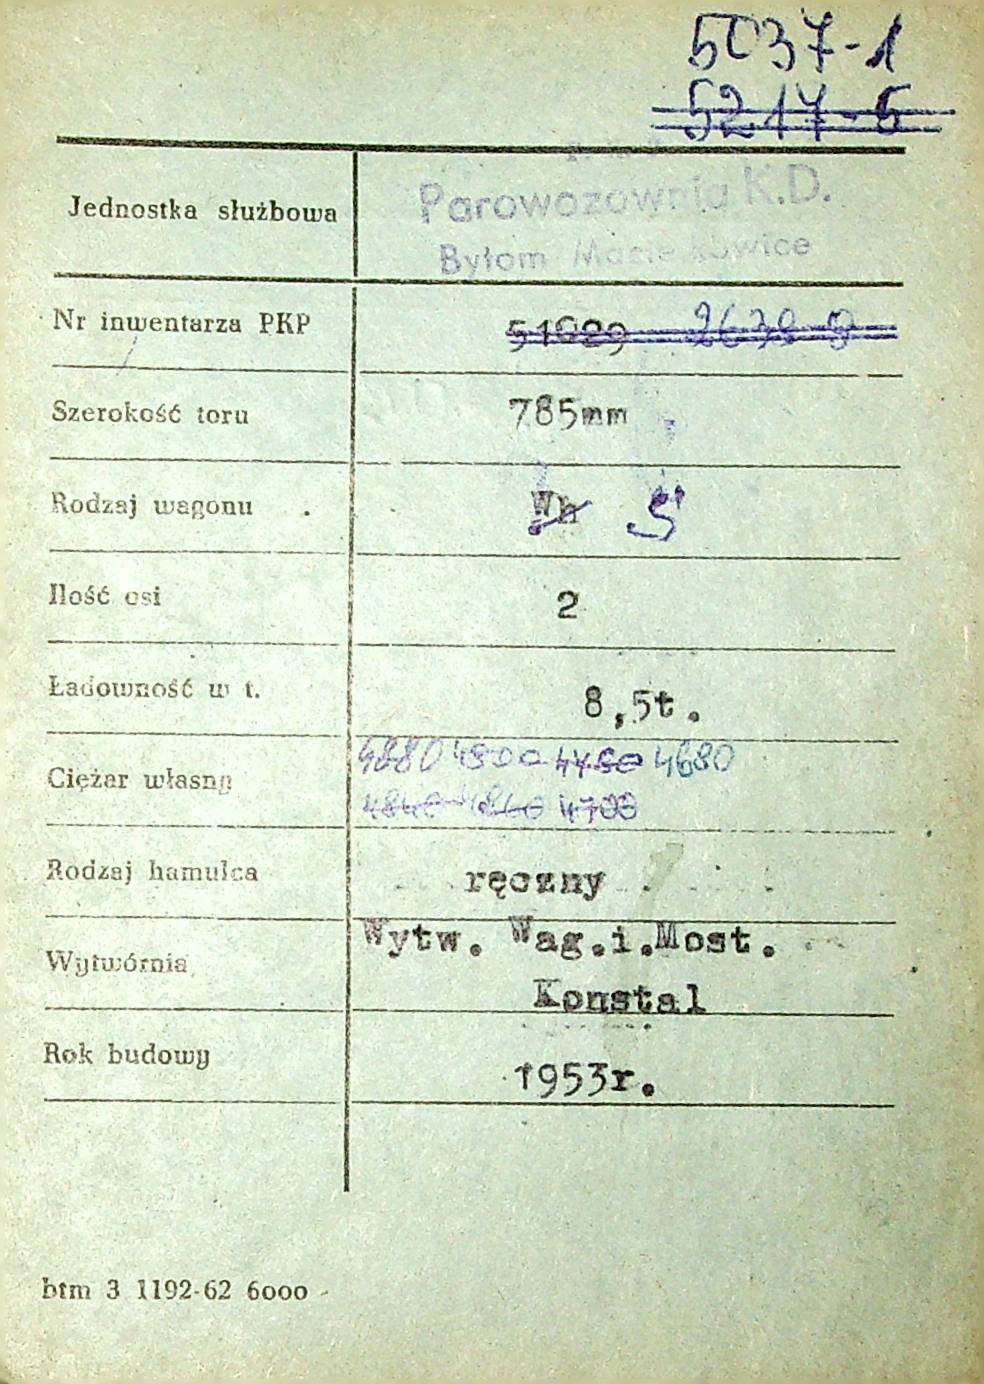 5037-1
5217-6
Jednostka służbowa Parowozownia K.D.
Bytom Maciejkowice
Nr inwentarza PKP 51029
Szerokość toru 785mm
Rodzaj wagonu Wh S
Ilość osi 2
Ładowność w t. 8,5t.
4880 4800 4480 4680
Ciężar własny
4840 4860 4700
Rodzaj hamulca ręczny
Wytw. Wag.i.Most.
Wytwórnia
Konstal
Rok budowy 1953r.
btm 3 1192-62 6000